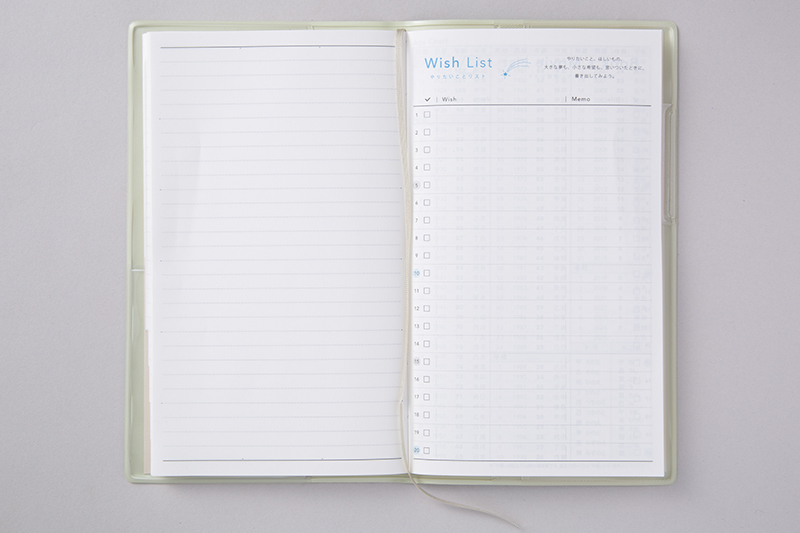 Wish List
やりたいことリスト
やりたいこと、ほしいもの、
大きな夢も、小さな希望も、思いついたときに、
書き出してみよう。
✓ | Wish | Memo
1
2
3
4
5
6
7
8
9
10
11
12
13
14
15
16
17
18
19
20